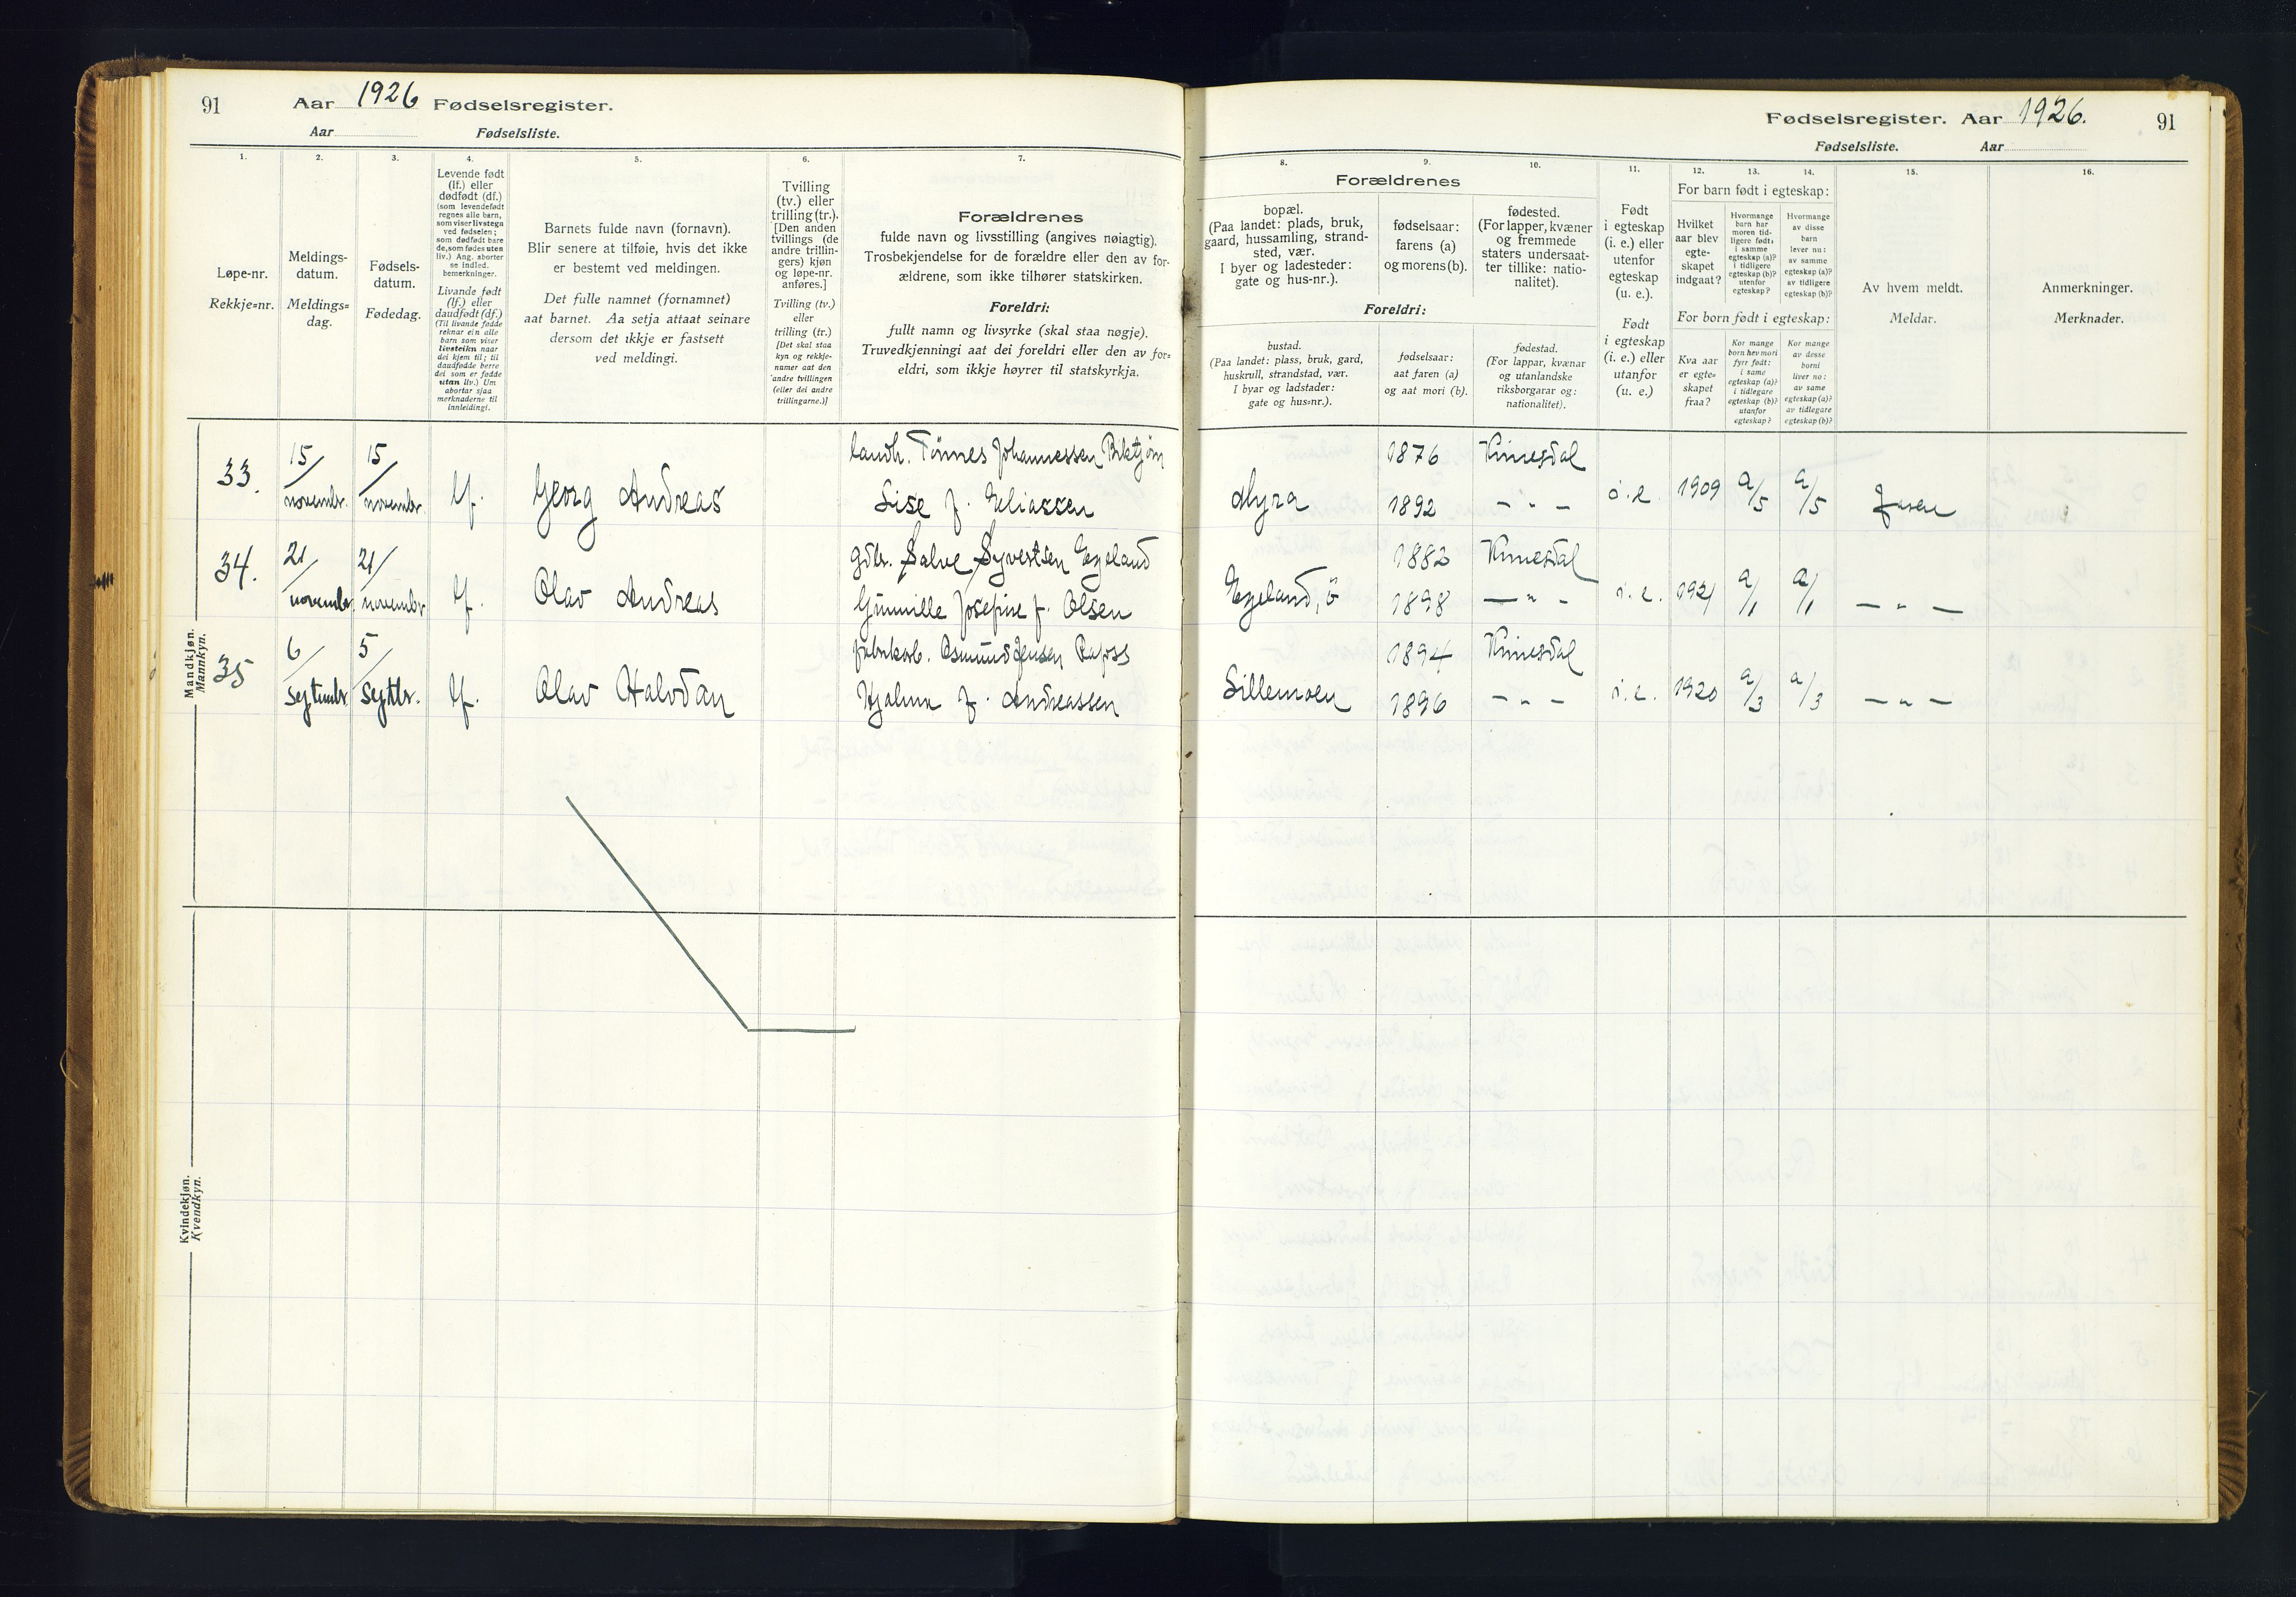 91
Aar 1926 Fødselsregister.
Aar Fødselsliste.
1.
Løpe-nr.
Rekkje-nr.
2.
Meldings-
datum.
Meldings-
dag.
3.
Fødsels-
datum.
Fødedag.
4.
Levende født
(lf.) eller
dødfødt (df.)
(som levendefødt
regnes alle barn,
som viser livstegn
ved fødselen;
som dødfødt bare
de, som fødes uten
liv.) Ang. aborter
se indled.
bemerkninger.
Livande født
(lf.) eller
daudfødt (df.)
(Til livande fødde
reknar ein alle
barn som viser
livsteikn naar
dei kjem til; til
daudfødde berre
dei som er fødde
utan liv.) Um
abortar sjaa
merknaderne til
innleidingi.
5.
Barnets fulde navn (fornavn).
Blir senere at tilføie, hvis det ikke
er bestemt ved meldingen.
Det fulle namnet (fornamnet)
aat barnet. Aa setja attaat seinare
dersom det ikkje er fastsett
ved meldingi.
6.
Tvilling
(tv.) eller
trilling (tr.).
[Den anden
tvillings (de
andre trillin-
gers) kjøn
og løpe-nr.
anføres.]
Tvilling (tv.)
eller
trilling (tr.)
[Det skal staa
kyn og rekkje-
numer aat den
andre tvillingen
(eller dei andre
trillingarne.)]
7.
Forældrenes
fulde navn og livsstilling (angives nøiagtig).
Trosbekjendelse for de forældre eller den av for-
ældrene, som ikke tilhører statskirken.
Foreldri:
fullt namn og livsyrke (skal staa nøgje).
Truvedkjenningi aat dei foreldri eller den av for-
eldri, som ikkje høyrer til statskyrkja.
Mandkjøn.
Mannkyn.
33.
15/
novembr.
15/
novembr.
lf.
Georg Andreas
landh. Tønnes Johannessen
Lise f. Eliassen
34.
21/
novembr
21/
novembr
lf.
Olav Andreas
gdbr. Salve Syvertsen Egeland
Gunnille Josefine f. Olsen
35
6/
septembr
5/
septbr.
lf.
Olav Halvdan
fabrikarb. Osmund Jensen
Hjalma f. Andreassen
Kvindekjøn.
Kvendkyn.
Fødselsregister. Aar 1926.
91
Fødselsliste. Aar
8.
Forældrenes
bopæl.
(Paa landet: plads, bruk,
gaard, hussamling, strand-
sted, vær.
I byer og ladesteder:
gate og hus-nr.).
9.
fødselsaar:
farens (a)
og morens (b).
10.
fødested.
(For lapper, kvæner
og fremmede
staters undersaat-
ter tillike: natio-
nalitet).
Foreldri:
bustad.
(Paa landet: plass, bruk, gard,
huskrull, strandstad, vær.
I byar og ladstader:
gate og hus-nr.).
fødselsaar:
aat faren (a)
og aat mori (b).
fødestad.
(For lappar, kvænar
og utanlandske
riksborgarar og:
nationalitet).
11.
Født
i egteskap
(i. e.) eller
utenfor
egteskap
(u. e.).
Født
i egteskap
(i. e.) eller
utanfor
(u. e.)
12.
13.
14.
For barn født i egteskap:
Hvilket
aar blev
egte-
skapet
indgaat?
Hvormange
barn har
moren tid-
ligere født:
i samme
egteskap (a)?
i tidligere
egteskap (b)?
utenfor
egteskap?
Hvormange
av disse
barn
lever nu:
av samme
egteskap (a)?
av tidligere
egteskap (b)?
For born født i egteskap:
Kva aar
er egte-
skapet
fraa?
Kor mange
born hev mori
fyrr født:
i same
egteskap (a)?
i tidlegare
egteskap (b)?
utanfor
egteskap?
Kor mange
av desse
borni
liver no:
av same
egteskap (a)?
av tidlegare
egteskap (b)?
15.
Av hvem meldt.
Meldar.
16.
Anmerkninger.
Merknader.
1876 Kvinesdal
Myra 1892 – " – i.e. 1909 a/5 a/5
1882 Kvinesdal
Egeland, ö 1898 – " – i.e. 1921 a/1 a/1 – " –
1894 Kvinesdal
Lillemoen 1896 – " – i.e. 1920 a/3 a/3 – " –